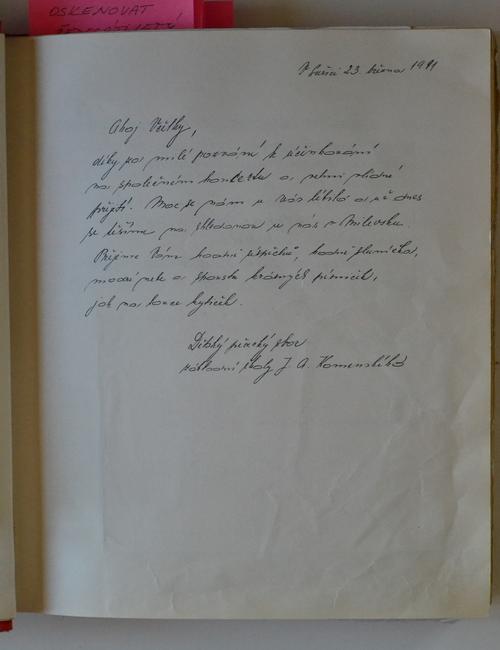 OSKENOVAT
23. března 1991
Ahoj Včelky,
díky za milé pozvání k účinkování
na společném koncertu a velmi vlídné
přijetí. Moc se nám u vás líbilo a už dnes
se těšíme na shledanou u nás v Milevsku.
Přejeme Vám hodně úspěchů, hodně sluníčka,
modré nebe a spousta krásných písniček,
jak na louce kytiček.
Dětský pěvecký sbor
základní školy J. A. Komenského